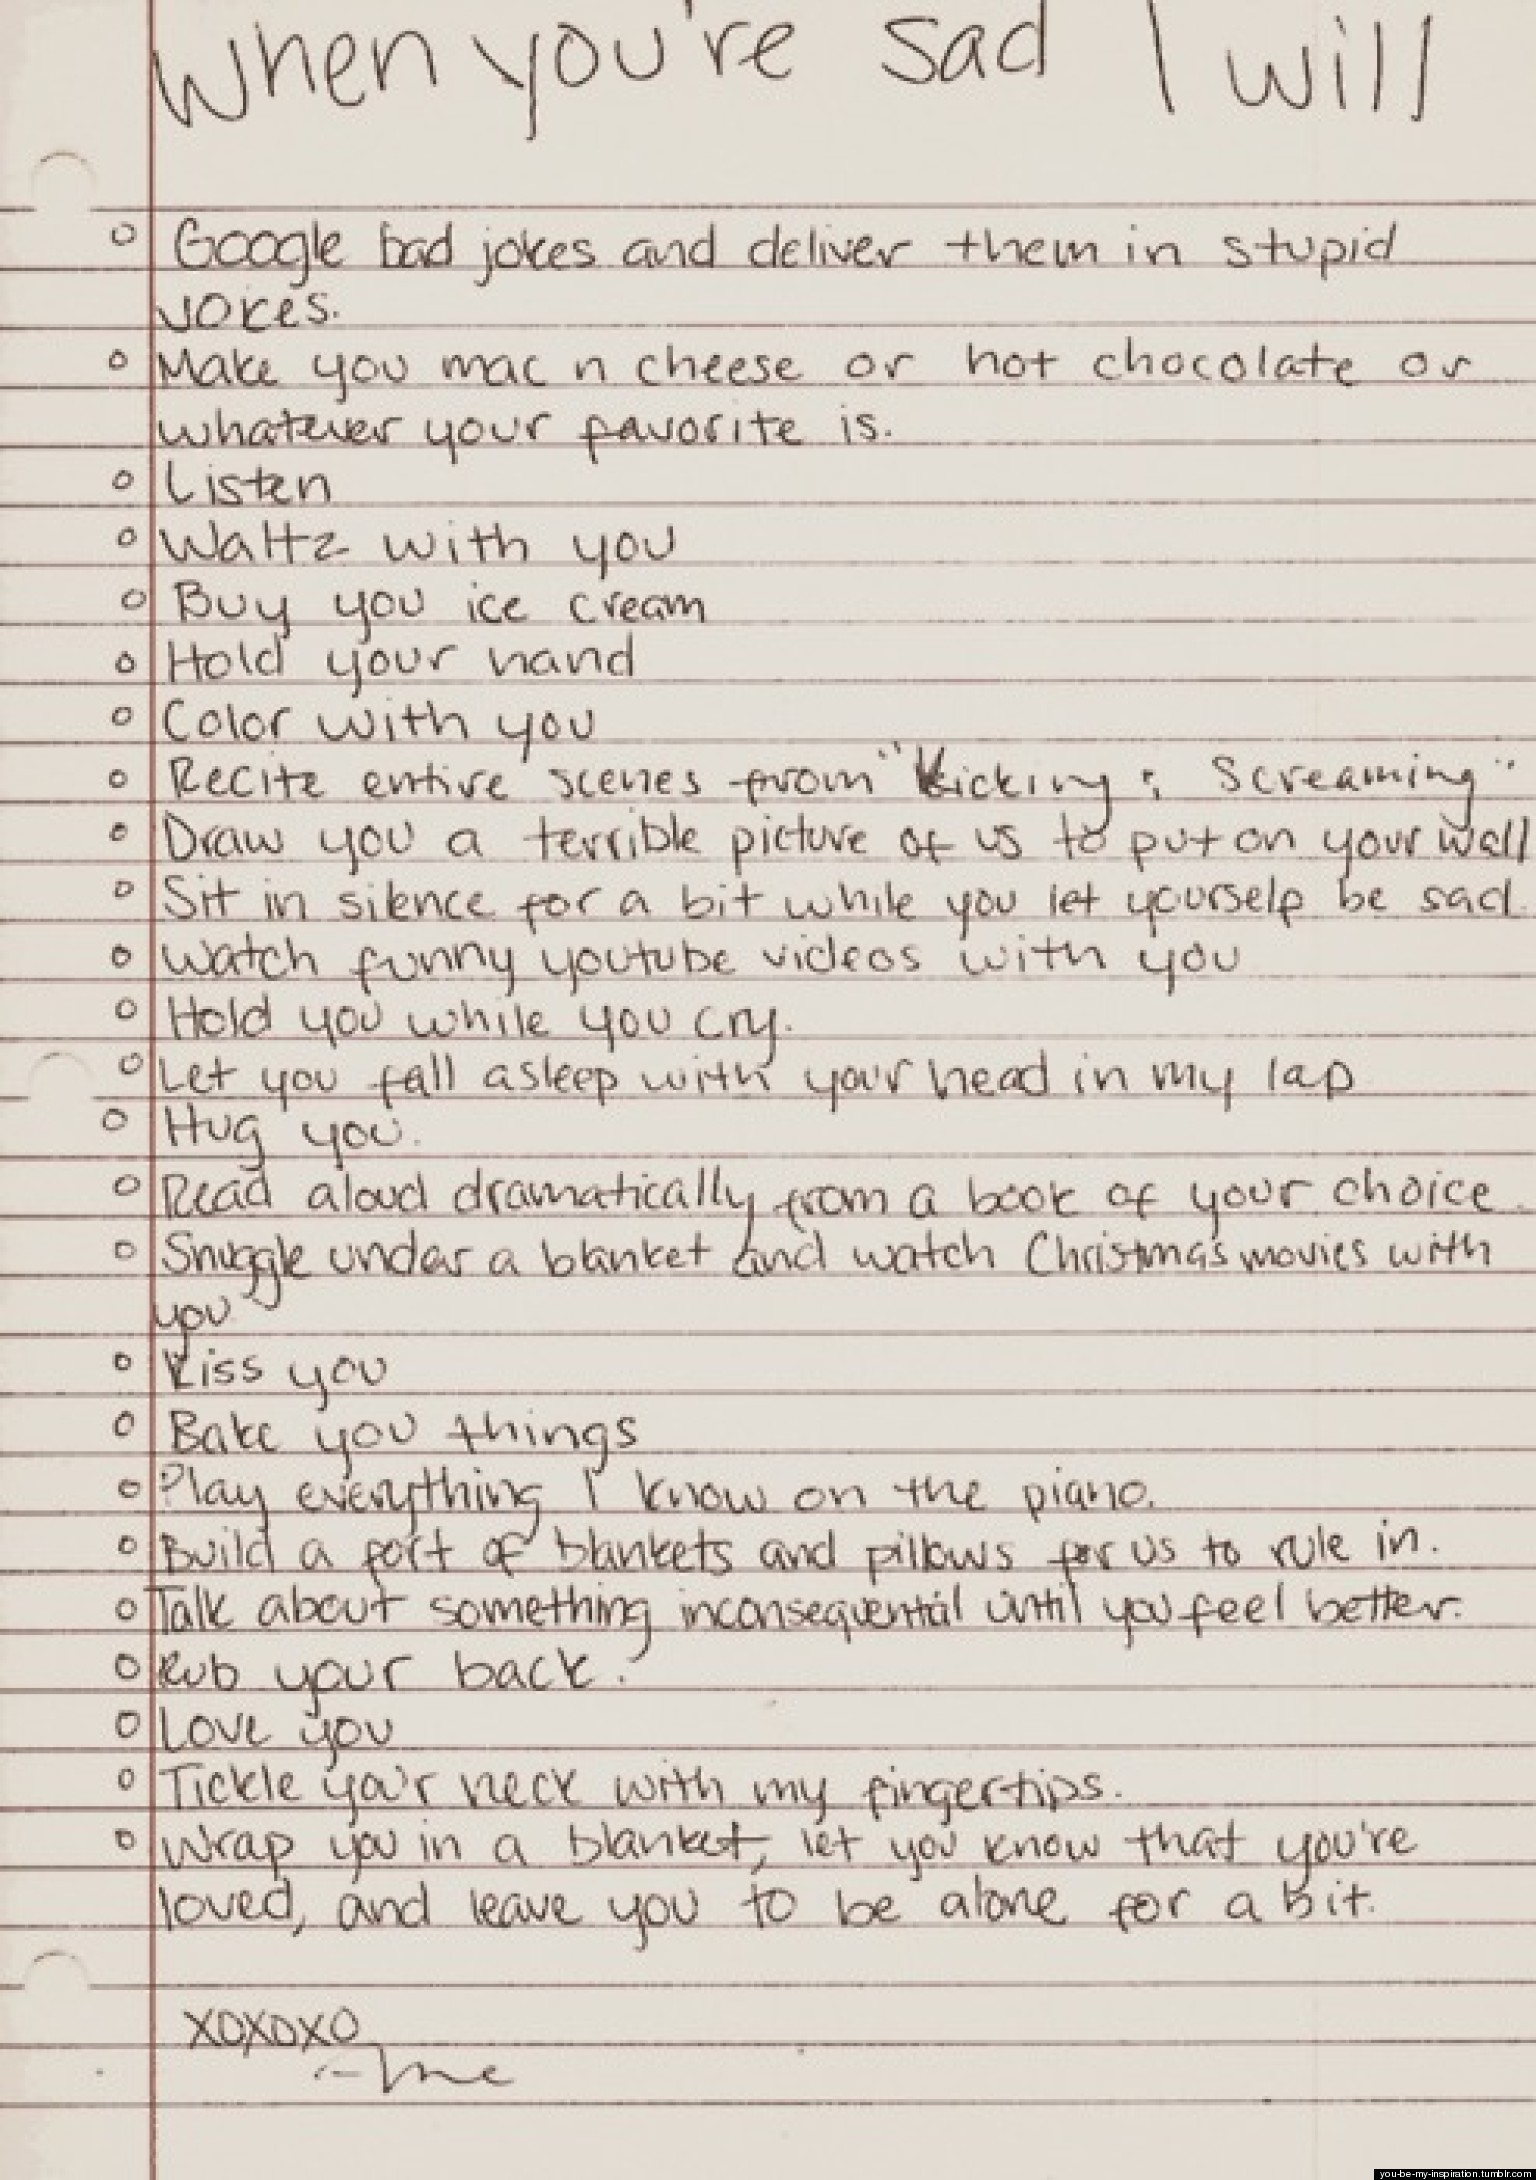 When you're sad I will
Google bad jokes and deliver them in stupid
voices.
Make you mac n cheese or hot chocolate or
whatever your favorite is.
Listen
Waltz with you
Buy you ice cream
Hold your hand
Color with you
Recite entire scenes from "Kicking & Screaming"
Draw you a terrible picture of us to put on your wall
Sit in silence for a bit while you let yourself be sad.
Watch funny youtube videos with you
Hold you while you cry.
Let you fall asleep with your head in my lap
Hug you.
Read aloud dramatically from a book of your choice.
Snuggle under a blanket and watch Christmas movies with
you
Kiss you
Bake you things
Play everything I know on the piano.
Build a fort of blankets and pillows for us to rule in.
Talk about something inconsequential until you feel better.
Rub your back.
Love you
Tickle your neck with my fingertips.
Wrap you in a blanket, let you know that you're
loved, and leave you to be alone for a bit.
XOXOXO
-Me
you-be-my-inspiration.tumblr.com